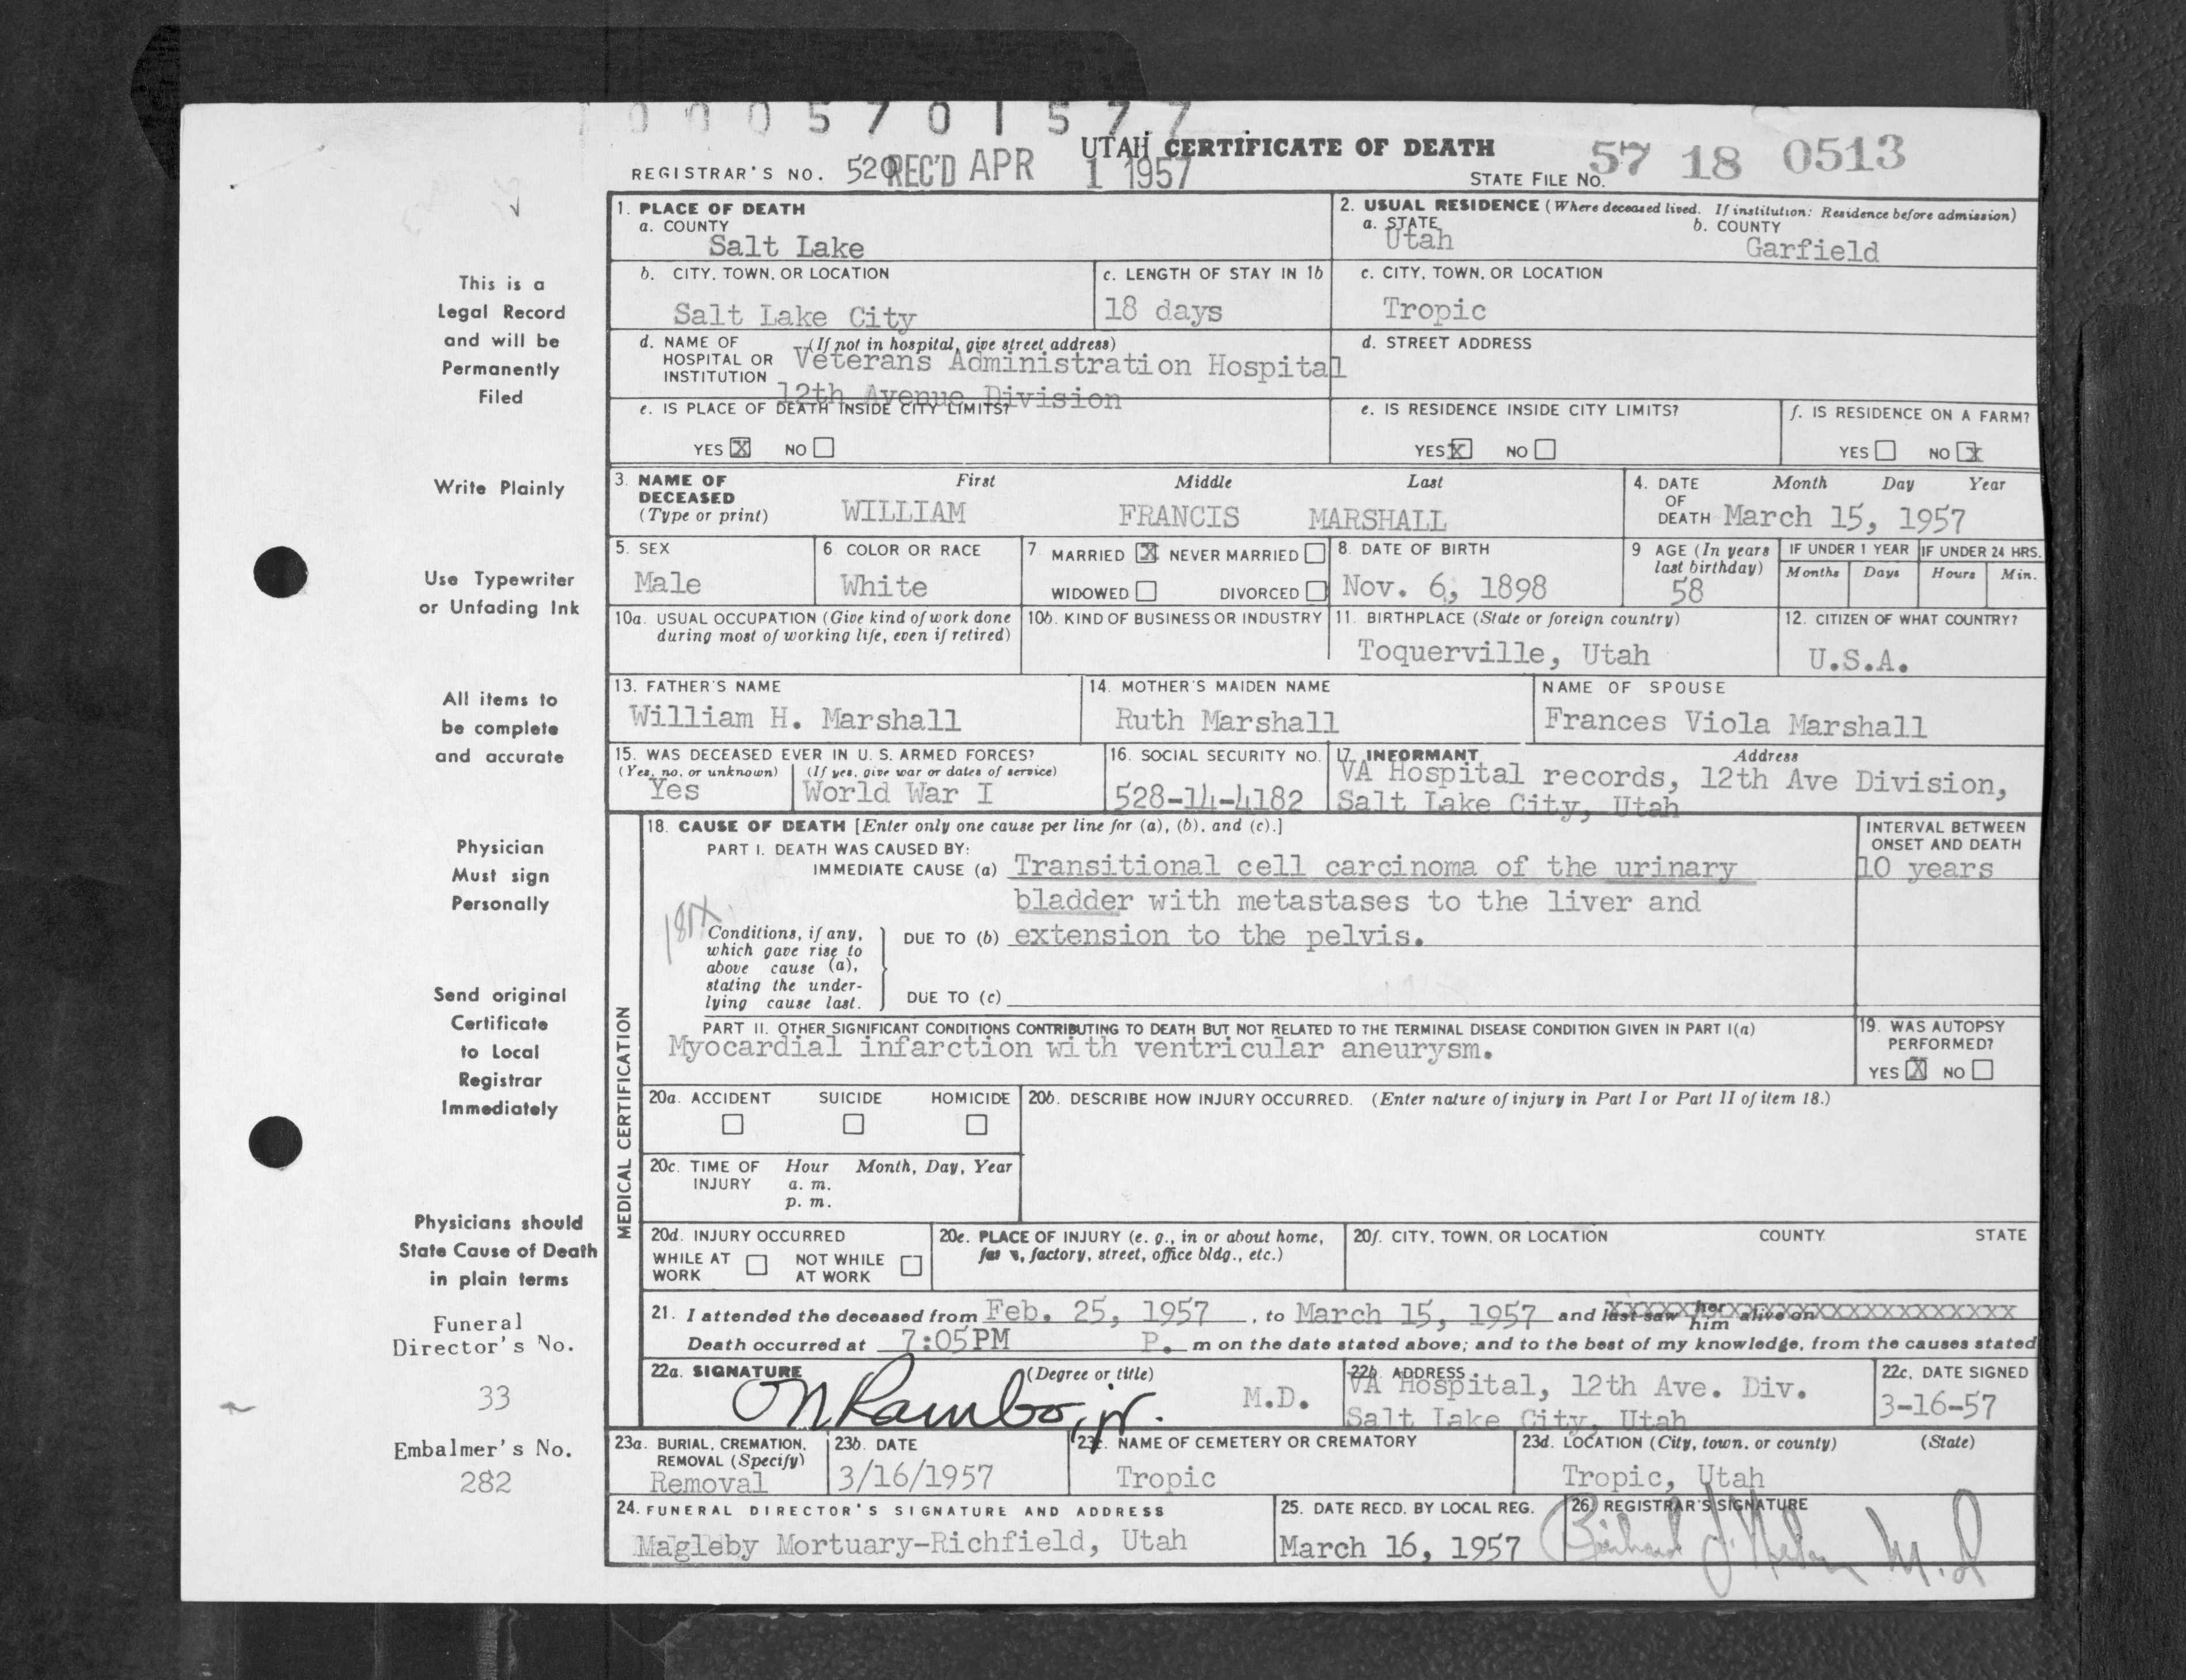 0005701577
UTAH CERTIFICATE OF DEATH
57 18 0513
REGISTRAR'S NO. 520 REC'D APR 1 1957
STATE FILE NO.
1. PLACE OF DEATH
a. COUNTY
Salt Lake
2. USUAL RESIDENCE (Where deceased lived. If institution: Residence before admission)
a. STATE
Utah
b. COUNTY
Garfield
b. CITY, TOWN, OR LOCATION
Salt Lake City
c. LENGTH OF STAY IN 1b
18 days
c. CITY, TOWN, OR LOCATION
Tropic
d. NAME OF HOSPITAL OR INSTITUTION
(If not in hospital, give street address)
Veterans Administration Hospital
12th Avenue Division
d. STREET ADDRESS
e. IS PLACE OF DEATH INSIDE CITY LIMITS?
YES X NO
e. IS RESIDENCE INSIDE CITY LIMITS?
YES X NO
f. IS RESIDENCE ON A FARM?
YES NO X
3. NAME OF DECEASED (Type or print)
First Middle Last
WILLIAM FRANCIS MARSHALL
4. DATE OF DEATH
Month Day Year
March 15, 1957
5. SEX
Male
6. COLOR OR RACE
White
7. MARRIED X NEVER MARRIED
WIDOWED DIVORCED
8. DATE OF BIRTH
Nov. 6, 1898
9 AGE (In years last birthday)
58
IF UNDER 1 YEAR
Months Days
IF UNDER 24 HRS.
Hours Min.
10a. USUAL OCCUPATION (Give kind of work done during most of working life, even if retired)
10b. KIND OF BUSINESS OR INDUSTRY
11. BIRTHPLACE (State or foreign country)
Toquerville, Utah
12. CITIZEN OF WHAT COUNTRY?
U.S.A.
13. FATHER'S NAME
William H. Marshall
14. MOTHER'S MAIDEN NAME
Ruth Marshall
NAME OF SPOUSE
Frances Viola Marshall
15. WAS DECEASED EVER IN U. S. ARMED FORCES?
(Yes, no, or unknown) (If yes, give war or dates of service)
Yes World War I
16. SOCIAL SECURITY NO.
528-14-4182
17. INFORMANT Address
VA Hospital records, 12th Ave Division,
Salt Lake City, Utah
MEDICAL CERTIFICATION
18. CAUSE OF DEATH [Enter only one cause per line for (a), (b), and (c).]
PART I. DEATH WAS CAUSED BY:
IMMEDIATE CAUSE (a) Transitional cell carcinoma of the urinary
bladder with metastases to the liver and
DUE TO (b) extension to the pelvis.
INTERVAL BETWEEN ONSET AND DEATH
10 years
Conditions, if any,
which gave rise to
above cause (a),
stating the under-
lying cause last.
DUE TO (c)
PART II. OTHER SIGNIFICANT CONDITIONS CONTRIBUTING TO DEATH BUT NOT RELATED TO THE TERMINAL DISEASE CONDITION GIVEN IN PART I(a)
Myocardial infarction with ventricular aneurysm.
19. WAS AUTOPSY PERFORMED?
YES X NO
20a. ACCIDENT SUICIDE HOMICIDE
20b. DESCRIBE HOW INJURY OCCURRED. (Enter nature of injury in Part I or Part II of item 18.)
20c. TIME OF INJURY Hour Month, Day, Year
a. m.
p. m.
20d. INJURY OCCURRED
WHILE AT WORK NOT WHILE AT WORK
20e. PLACE OF INJURY (e. g., in or about home,
farm, factory, street, office bldg., etc.)
20f. CITY, TOWN, OR LOCATION COUNTY STATE
21. I attended the deceased from Feb. 25, 1957, to March 15, 1957 and last saw her him alive on
Death occurred at 7:05PM P. m on the date stated above; and to the best of my knowledge, from the causes stated
22a. SIGNATURE (Degree or title)
Rambo, jr. M.D.
22b. ADDRESS
VA Hospital, 12th Ave. Div.
Salt Lake City, Utah
22c. DATE SIGNED
3-16-57
23a. BURIAL, CREMATION, REMOVAL (Specify)
Removal
23b. DATE
3/16/1957
23c. NAME OF CEMETERY OR CREMATORY
Tropic
23d. LOCATION (City, town, or county) (State)
Tropic, Utah
24. FUNERAL DIRECTOR'S SIGNATURE AND ADDRESS
Magleby Mortuary-Richfield, Utah
25. DATE RECD. BY LOCAL REG.
March 16, 1957
26. REGISTRAR'S SIGNATURE
M.D
This is a
Legal Record
and will be
Permanently
Filed
Write Plainly
Use Typewriter
or Unfading Ink
All items to
be complete
and accurate
Physician
Must sign
Personally
Send original
Certificate
to Local
Registrar
Immediately
Physicians should
State Cause of Death
in plain terms
Funeral
Director's No.
33
Embalmer's No.
282